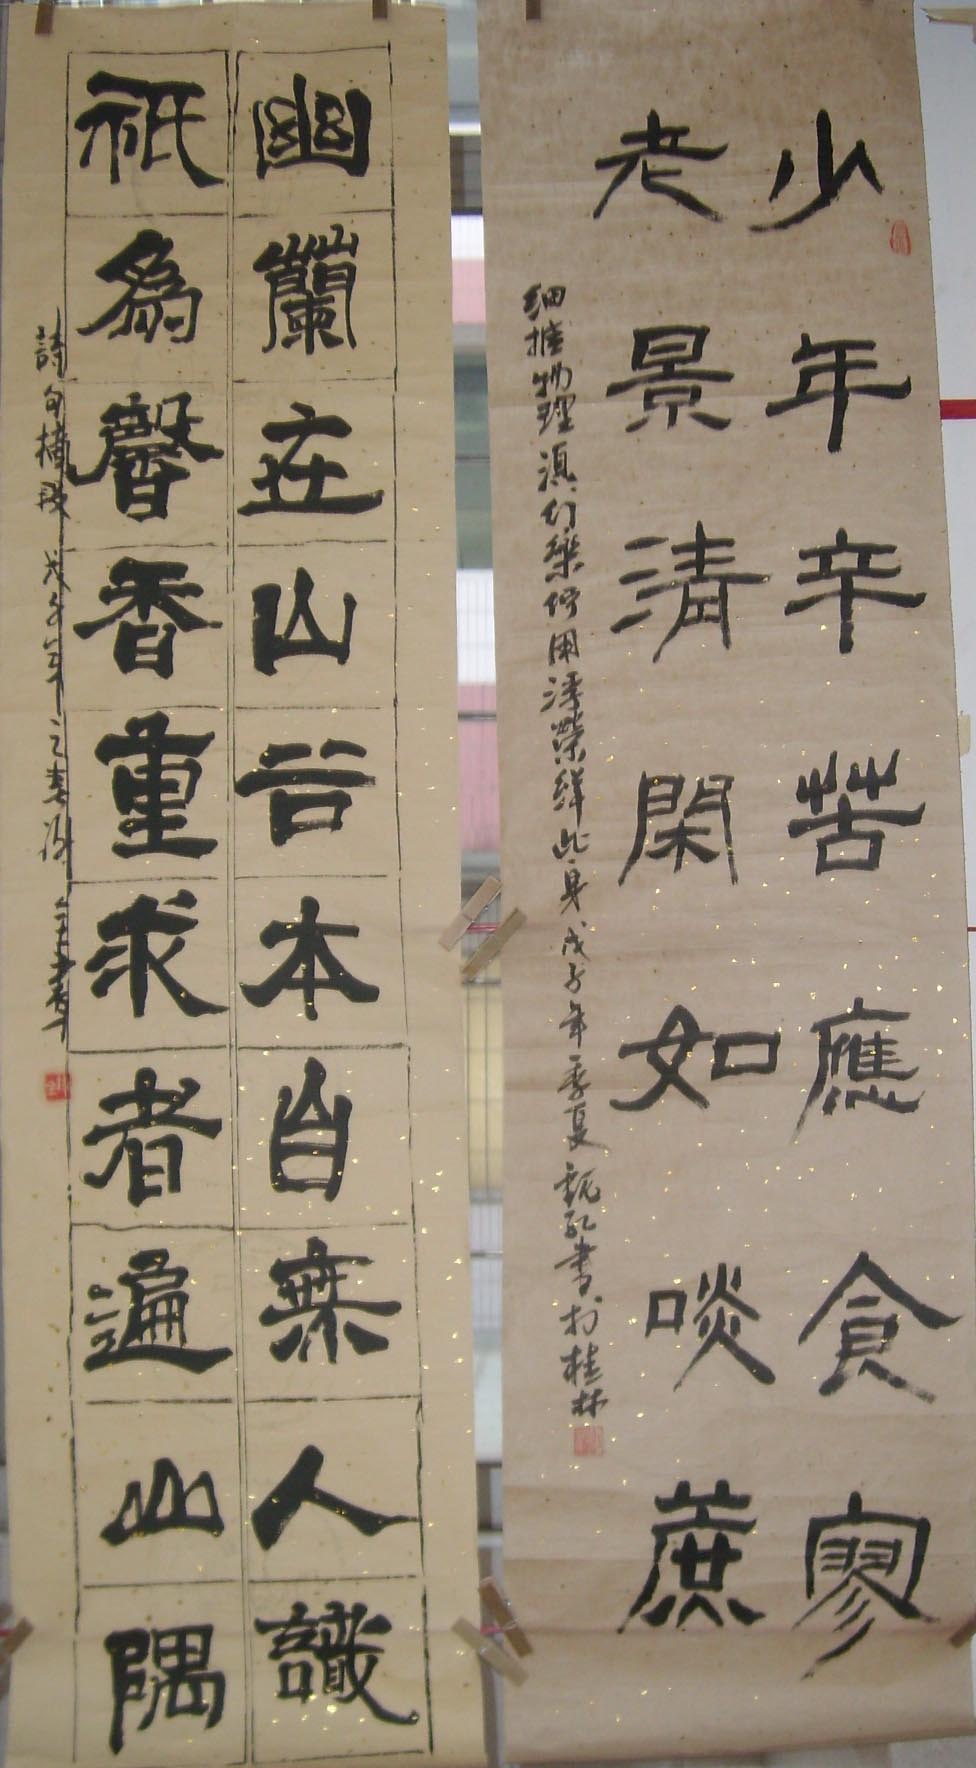 少年辛苦應食寥
老景清閑如啖蔗
细推物理須行樂何用浮榮絆此身戊子年季夏書於桂林
幽蘭在山谷本自無人識
祇為馨香重求者遍山隅
詩句戊子年之春